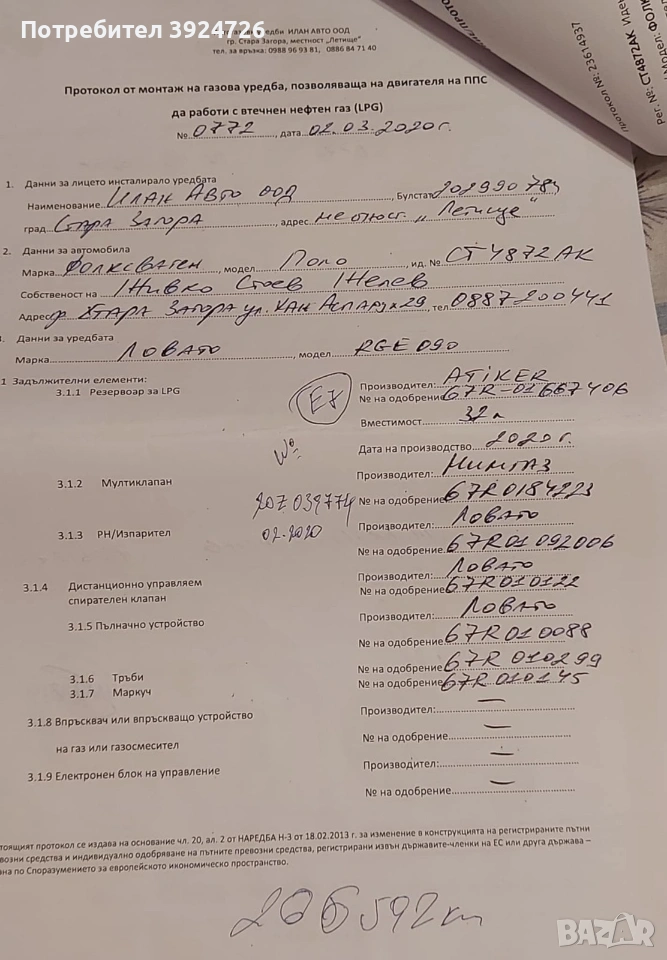 Потребител 3924726
газови уредби ИЛАН АВТО ООД
гр. Стара Загора, местност „Летище"
тел. за връзка: 0988 96 93 81, 0886 84 71 40
Протокол от монтаж на газова уредба, позволяваща на двигателя на ППС
да работи с втечнен нефтен газ (LPG)
№ 0772, дата 02.03.2020г.
1. Данни за лицето инсталирало уредбата
Наименование Илан Авто ООД, Булстат 202990784
град Стара Загора, адрес местност „Летище"
2. Данни за автомобила
Марка Фолксваген, модел Поло, ид. № СТ4872АК
Собственост на Живко Стоев Желев
Адрес гр. Стара Загора ул. Хан Аспарух 29, тел 0887200441
Данни за уредбата
Марка Ловато, модел RGE090
1 Задължителни елементи:
3.1.1 Резервоар за LPG
E7
Производител: ATIKER
№ на одобрение 67R-01667406
Вместимост 32л
Дата на производство 2020г.
№
3.1.2 Мултиклапан
Производител:
№ на одобрение 67R0184223
207039774
3.1.3 РН/Изпарител
02.2020
Производител: Ловато
№ на одобрение 67R01092006
3.1.4 Дистанционно управляем
спирателен клапан
Производител: Ловато
№ на одобрение 67R010122
3.1.5 Пълначно устройство
Производител: Ловато
№ на одобрение 67R010088
3.1.6 Тръби
№ на одобрение 67R 010299
3.1.7 Маркуч
№ на одобрение 67R 010145
3.1.8 Впръсквач или впръскващо устройство
на газ или газосмесител
Производител: —
№ на одобрение —
3.1.9 Електронен блок на управление
Производител: —
№ на одобрение —
тоящият протокол се издава на основание чл. 20, ал. 2 от НАРЕДБА Н-3 от 18.02.2013 г. за изменение в конструкцията на регистрираните пътни
возни средства и индивидуално одобряване на пътните превозни средства, регистрирани извън държавите-членки на ЕС или друга държава –
ана по Споразумението за европейското икономическо пространство.
206592km
протокол №: 23614937
Рег. №: СТ4872АК
BAZAR